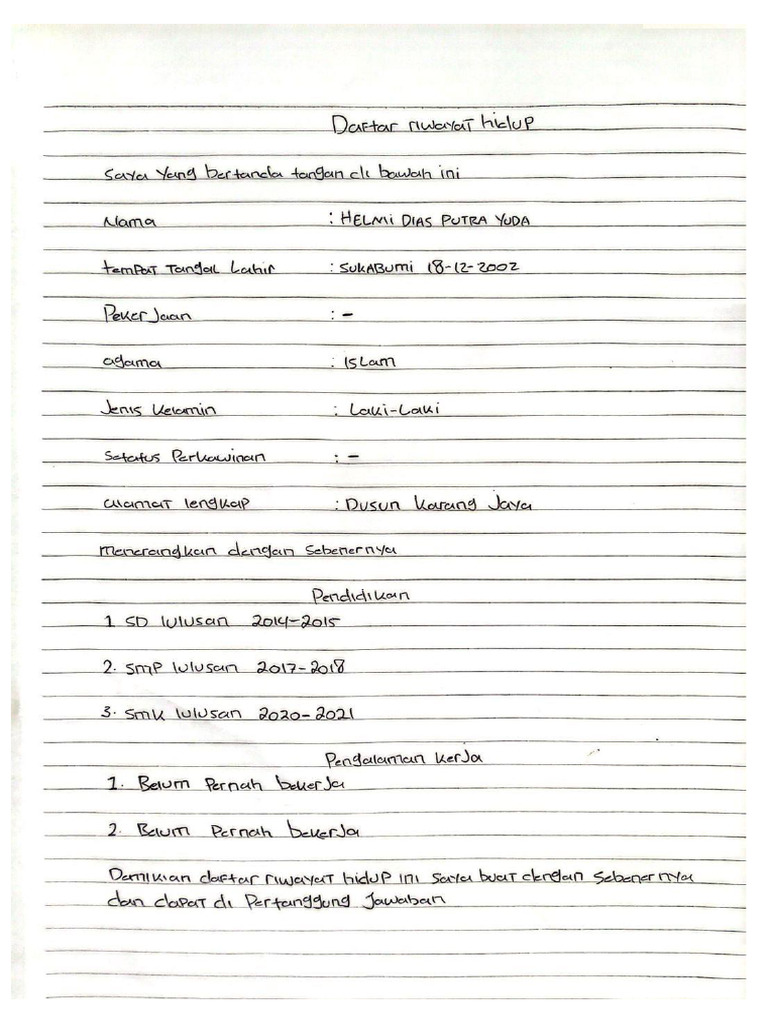 Daftar riwayat hidup
Saya yang bertanda tangan di bawah ini
Nama : HELMI DIAS PUTRA YUDA
tempat Tanggal Lahir : SUKABUMI 18-12-2002
Pekerjaan : -
agama : Islam
Jenis kelamin : Laki-Laki
Setatus Perkawinan : -
alamat lengkap : Dusun Karang Jaya
menerangkan dengan sebenernya
Pendidikan
1 SD lulusan 2014-2015
2. SMP lulusan 2017-2018
3. SMK lulusan 2020-2021
Pengalaman kerja
1. Belum Pernah bekerja
2. Belum Pernah bekerja
Demikian daftar riwayat hidup ini saya buat dengan sebenernya
dan dapat di Pertanggung Jawaban